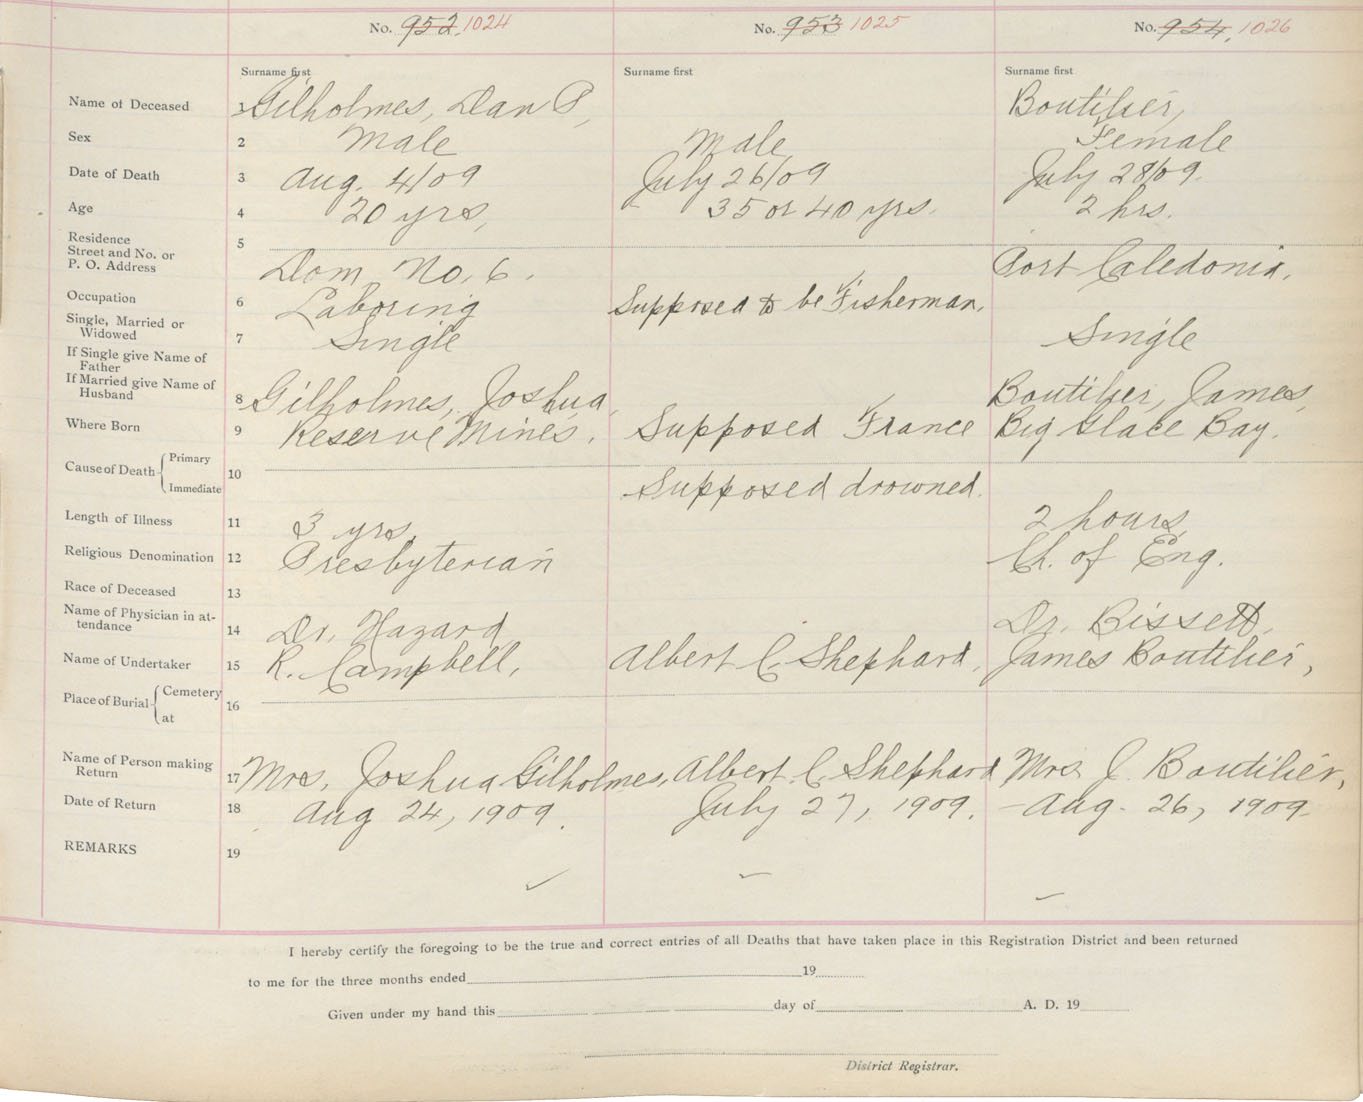 No. 952. 1024 No. 953 1025 No. 954. 1026
Surname first Surname first Surname first
Name of Deceased 1 Gilholmes, Dan P, Boutilier,
Sex 2 Male Male Female
Date of Death 3 Aug. 4/09 July 26/09 July 28/09.
Age 4 20 yrs, 35 or 40 yrs. 2 hrs.
Residence 5
Street and No. or
P. O. Address Dom No. 6. Port Caledonia.
Occupation 6 Laboring Supposed to be Fisherman.
Single, Married or
Widowed 7 Single Single
If Single give Name of
Father
If Married give Name of
Husband 8 Gilholmes, Joshua, Boutilier, James,
Where Born 9 Reserve Mines. Supposed France Big Glace Bay.
Cause of Death Primary 10
Immediate Supposed drowned.
Length of Illness 11 3 yrs. 2 hours,
Religious Denomination 12 Presbyterian Ch. of Eng.
Race of Deceased 13
Name of Physician in at-
tendance 14 Dr. Hazard Dr. Bissett,
Name of Undertaker 15 R. Campbell, Albert C. Shephard, James Boutilier,
Place of Burial Cemetery 16
at
Name of Person making
Return 17 Mrs. Joshua Gilholmes, Albert C. Shephard Mrs J. Boutilier,
Date of Return 18 Aug 24, 1909. July 27, 1909. Aug. 26, 1909
REMARKS 19
I hereby certify the foregoing to be the true and correct entries of all Deaths that have taken place in this Registration District and been returned
to me for the three months ended 19
Given under my hand this day of A. D. 19
District Registrar.